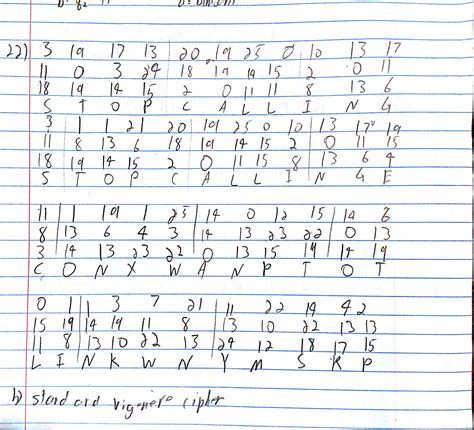 22) 3 19 17 13 20 19 25 0 10 13 17
11 0 3 24 18 19 19 15 2 0 11
18 19 14 15 2 0 11 11 8 13 6
S T O P C A L L I N G
3 1 1 21 20 19 25 0 10 13 17 19
11 8 13 6 18 19 14 15 2 0 11 15
18 19 14 15 2 0 11 15 8 13 6 4
S T O P C A L L I N G E
11 1 19 1 25 14 0 12 15 14 6
8 13 6 4 3 14 13 23 22 0 13
3 14 13 23 22 0 13 15 19 14 19
C O N X W A N P T O T
0 1 1 3 7 21 11 22 14 4 2
15 19 14 19 11 8 13 10 22 13 13
11 8 13 10 22 13 24 12 18 17 15
L I N K W N Y M S R P
b) standard vigenere cipher